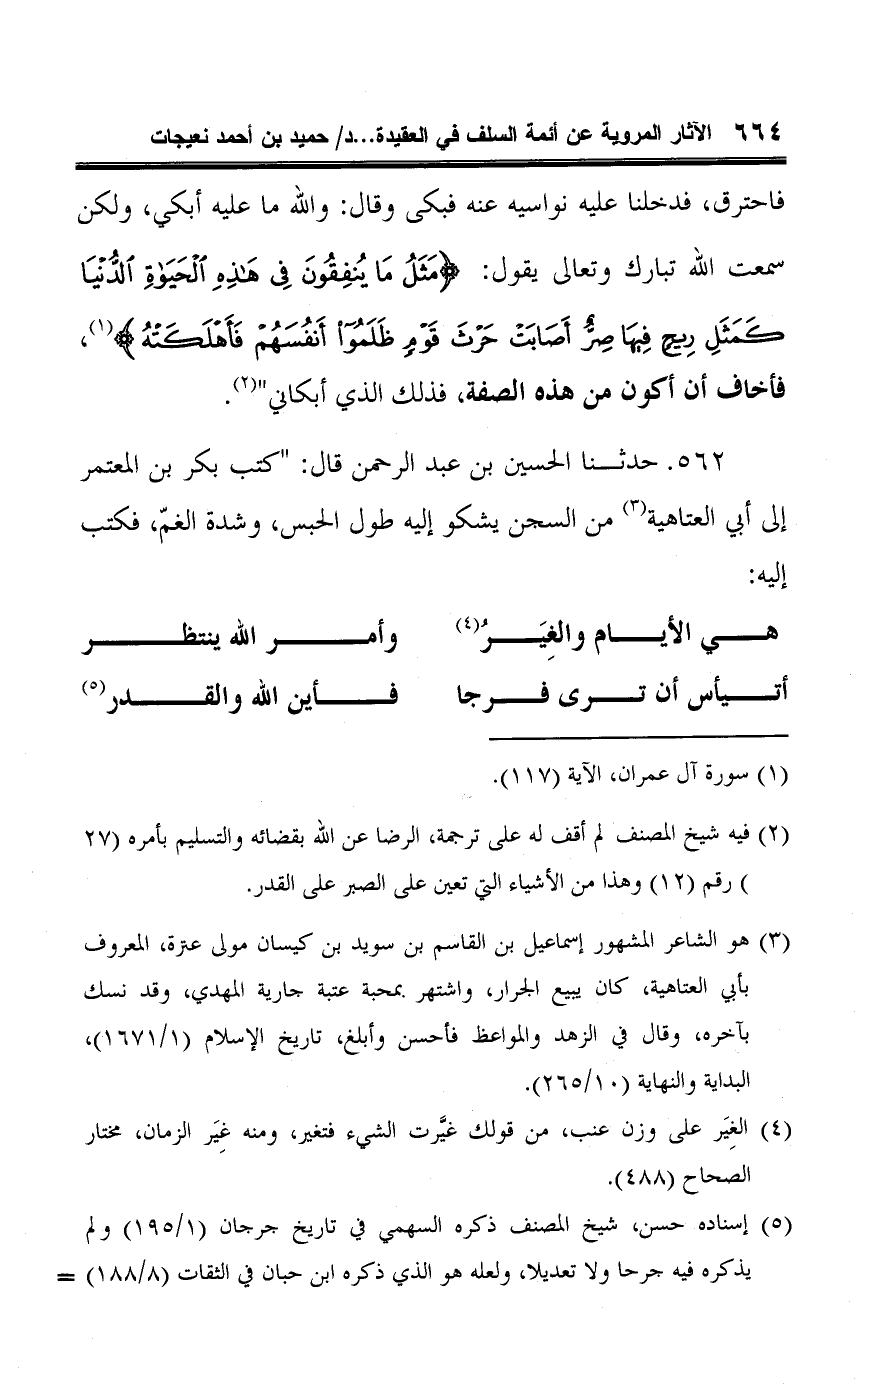 ٦٦٤ الآثار المروية عن أئمة السلف في العقيدة...د/ حميد بن أحمد نعيجات
فاحترق، فدخلنا عليه نواسيه عنه فبكى وقال: والله ما عليه أبكي، ولكن
سمعت الله تبارك وتعالى يقول: ﴿مَثَلُ مَا يُنفِقُونَ فِى هَٰذِهِ ٱلْحَيَوٰةِ ٱلدُّنْيَا
كَمَثَلِ رِيحٍ فِيهَا صِرٌّ أَصَابَتْ حَرْثَ قَوْمٍ ظَلَمُوٓا۟ أَنفُسَهُمْ فَأَهْلَكَتْهُ﴾(١)،
فأخاف أن أكون من هذه الصفة، فذلك الذي أبكاني"(٢).
٥٦٢. حدثنا الحسين بن عبد الرحمن قال: "كتب بكر بن المعتمر
إلى أبي العتاهية(٣) من السجن يشكو إليه طول الحبس، وشدة الغمّ، فكتب
إليه:
هي الأيام والغِيَرُ(٤) وأمر الله ينتظر
أتيأس أن ترى فرجا فأين الله والقدر(٥)
(١) سورة آل عمران، الآية (١١٧).
(٢) فيه شيخ المصنف لم أقف له على ترجمة، الرضا عن الله بقضائه والتسليم بأمره (٢٧
) رقم (١٢) وهذا من الأشياء التي تعين على الصبر على القدر.
(٣) هو الشاعر المشهور إسماعيل بن القاسم بن سويد بن كيسان مولى عنزة، المعروف
بأبي العتاهية، كان يبيع الجرار، واشتهر بمحبة عتبة جارية المهدي، وقد نسك
بآخره، وقال في الزهد والمواعظ فأحسن وأبلغ، تاريخ الإسلام (١٦٧١/١)،
البداية والنهاية (٢٦٥/١٠).
(٤) الغِيَر على وزن عنب، من قولك غيَّرت الشيء فتغير، ومنه غِيَر الزمان، مختار
الصحاح (٤٨٨).
(٥) إسناده حسن، شيخ المصنف ذكره السهمي في تاريخ جرجان (١٩٥/١) ولم
يذكره فيه جرحا ولا تعديلا، ولعله هو الذي ذكره ابن حبان في الثقات (١٨٨/٨) =